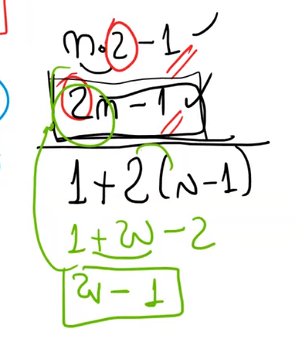 n·2-1
2n-1
1+2(n-1)
1+2n-2
2n-1